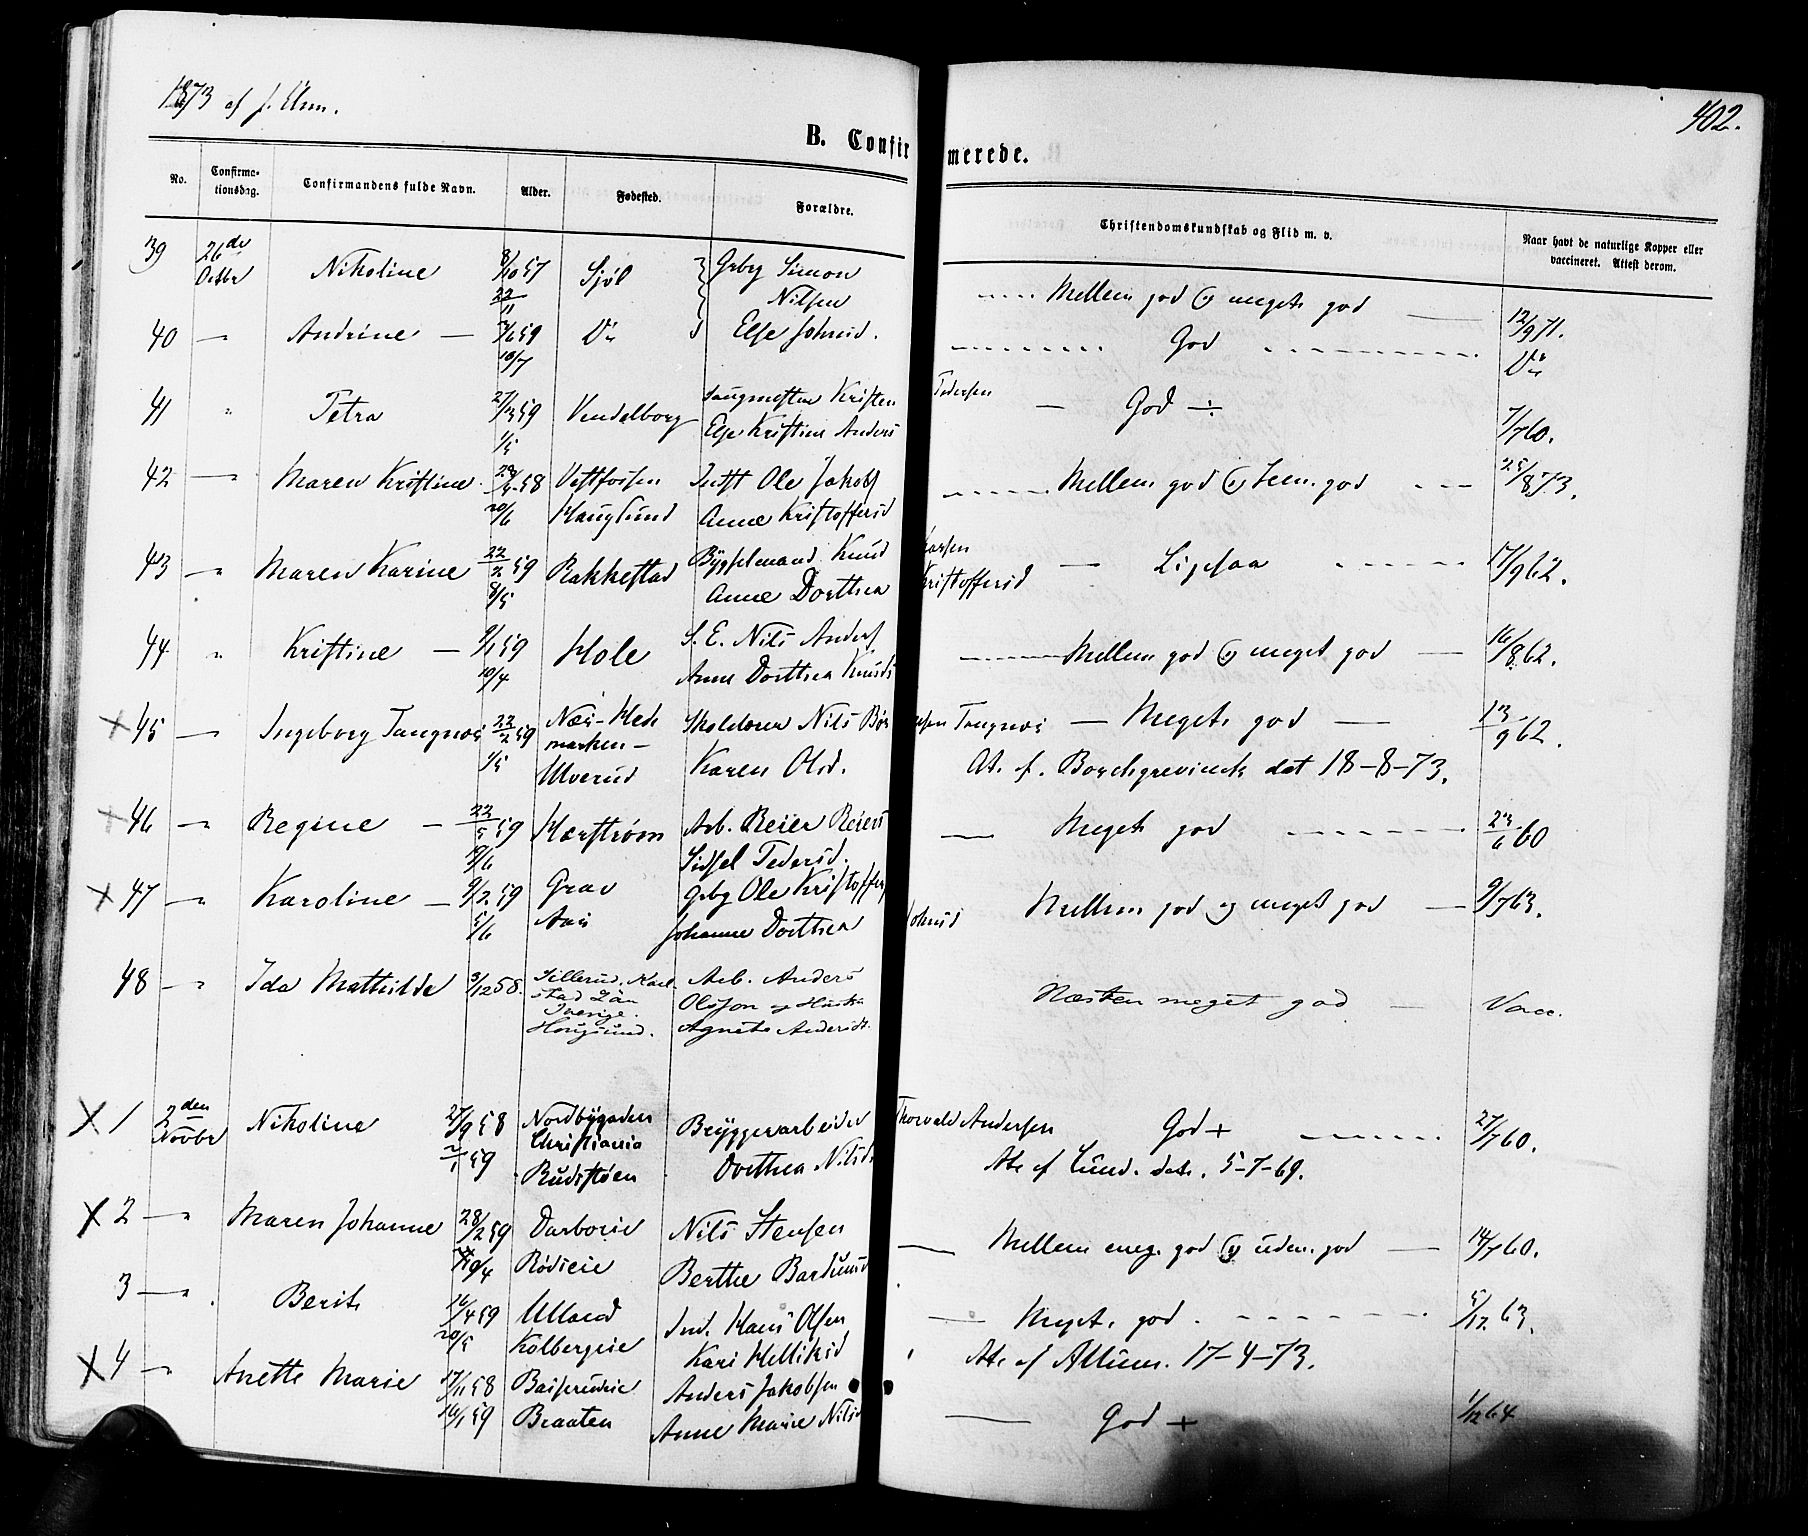 1873 af
402.
B. Confirmerede.
No. Confirmationsdag. Confirmandens fulde Navn. Alder. Fødested. Forældre. Christendomskundskab og Flid m. v. Naar havt de naturlige Kopper eller vaccineret. Attest derom.
39 26de Octbr Nikoline 8/10 57 Grbr Simon Mellem god og meget god 12/9 71.
22/11 Nilsen
40 — " — Andrine — 59 Do Else Johnsd. God Do
10/7
41 " Petra 59 Vendelborg Kristen Pedersen — God ÷ 7/7 60.
1/5 Else Kristine Anders
42 — " — Maren Kristine 58 Vestfossen Ole Jakobs Mellem god og god 25/8 73.
20/6 Haugsund Anne Kristoffersd
43 — " — Maren Karine 22/2 59 Rakkestad Bygselmand Knud Larsen — Ligesaa 17/9 62.
8/5 Anne Dorthea Kristoffersd
44 " Kristine — 9/1 59 Hole S. E. Nils Anders Mellem god og meget god — 16/8 62.
10/4 Anne Dorthea Knuds
x 45 — " — Ingeborg Tangnæs 22/2 59 Næs-Hedmarken — Skolelærer Nils Børresen Tangnæs — Meget god — 13/9 62.
1/5 Ulverud Karen Olsd. At. f. Borchgrevinck dat 18-8-73.
x 46 — " — Regine — 22/5 59 Hærstrøm Arb. Reier Reiers — Meget god 23/6 60
Sidsel Pedersd.
x 47 — " — Karoline — 9/2 59 Grav Ole Kristoffers Mellem god og meget god — 9/7 63.
5/6 Aas Johanne Dorthea Johnsd
48 — " — Ida Mathilde 3/12 58. Sillerud, Karlstad Län Arb. Anders Næsten meget god — Vacc.
Sverige. Olsson og Hustru
Hougsund. Agnete Andersdt.
x 1 2den Novbr Nikoline 27/9 58 Nordbygaden Christiania Bryggerarbeider Thorvald Andersen God + 27/7 60.
59 Rudstøen Dorthea Nilsd At. af Lund. dat. 5-7-69.
x 2 — " — Maren Johanne 28/2 59 Darboeie Nils Stensen — Mellem meg. god og uden. god — 14/7 60.
10/4 Rødseie Berthe Bardunsd
3 — " — Berit 16/4 59 Ulland Ind. Hans Olsen — Meget god 5/12 63.
20/5 Kolbergeie Kari Helliksd At. af 17-4-73.
x 4 — " — Anette Marie 17/11 58 Anders Jakobsen — God + 1/12 64
16/1 59 Braaten Anne Marie Nilsd